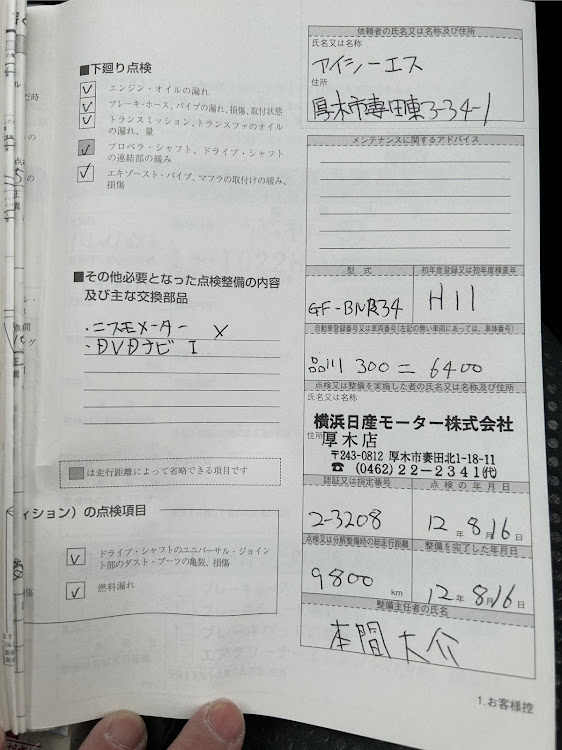 ■下廻り点検
エンジン・オイルの漏れ
ブレーキ・ホース、パイプの漏れ、損傷、取付状態
トランスミッション、トランスファのオイル
の漏れ、量
プロペラ・シャフト、ドライブ・シャフト
の連結部の緩み
エキゾースト・パイプ、マフラの取付けの緩み、
損傷
■その他必要となった点検整備の内容
及び主な交換部品
・ニスモメーター X
・DVDナビ I
は走行距離によって省略できる項目です
ィション）の点検項目
ドライブ・シャフトのユニバーサル・ジョイン
ト部のダスト・ブーツの亀裂、損傷
燃料漏れ
依頼者の氏名又は名称及び住所
氏名又は名称
アイシーエス
住所
厚木市妻田東3-34-1
メンテナンスに関するアドバイス
型式
初年度登録又は初年度検査年
GF-BNR34
H11
自動車登録番号又は車両番号(左記の無い車両にあっては、車体番号)
品川 300 = 6400
点検又は整備を実施した者の氏名又は名称及び住所
氏名又は名称
横浜日産モーター株式会社
住所 厚木店
〒243-0812 厚木市妻田北1-18-11
☎ (0462)22-2341(代)
認証又は指定番号
点検の年月日
2-3208
12年8月16日
点検又は分解整備時の総走行距離
整備を完了した年月日
9800 km
12年8月16日
整備主任者の氏名
本間大介
1.お客様控